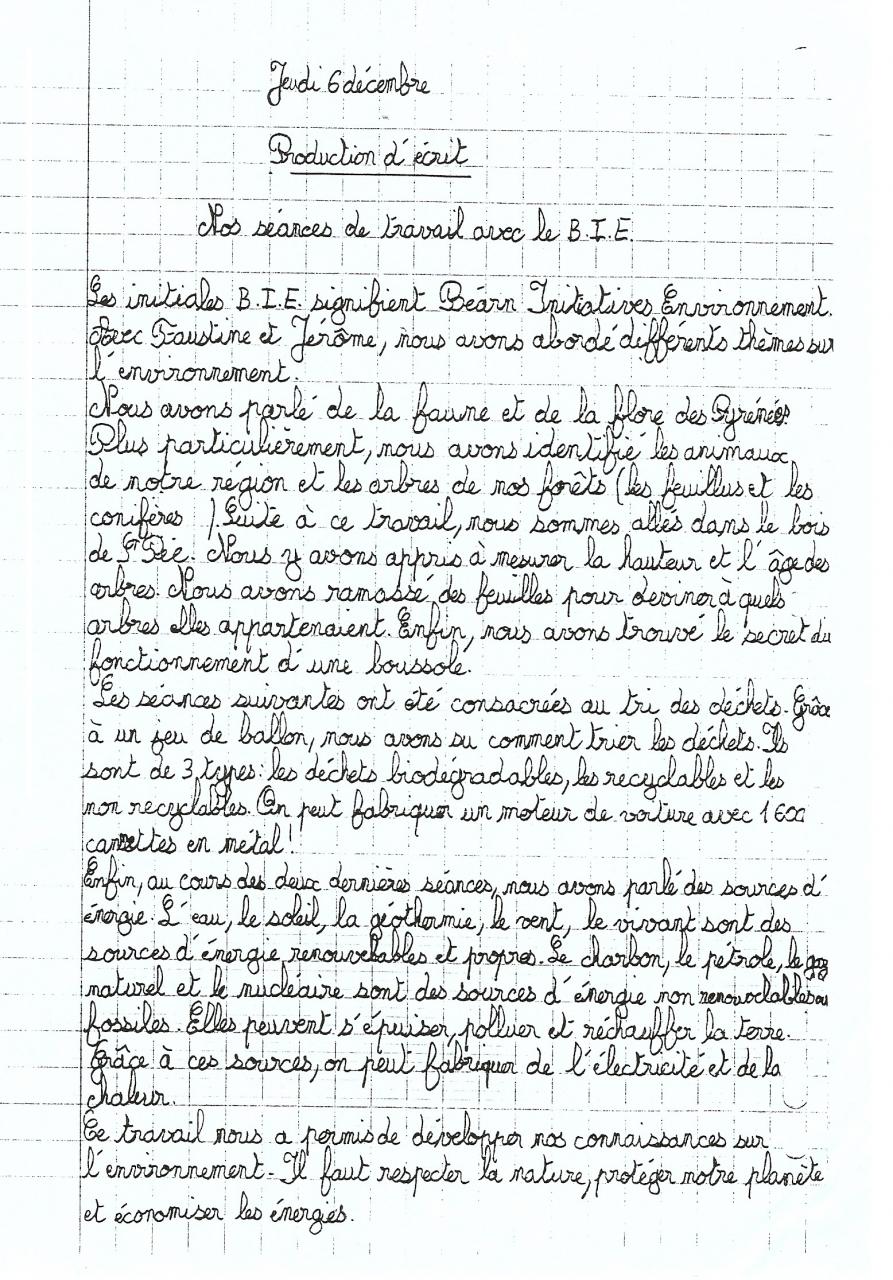 Jeudi 6 décembre
Production d'écrit
Nos séances de travail avec le B.I.E.
Les initiales B.I.E. signifient Béarn Initiatives Environnement.
Avec Faustine et Jérôme, nous avons abordé différents thèmes sur
l'environnement.
Nous avons parlé de la faune et de la flore des Pyrénées.
Plus particulièrement, nous avons identifié les animaux
de notre région et les arbres de nos forêts (les feuillus et les
conifères ). Suite à ce travail, nous sommes allés dans le bois
de St Pée. Nous y avons appris à mesurer la hauteur et l'âge des
arbres. Nous avons ramassé des feuilles pour deviner à quels
arbres elles appartenaient. Enfin, nous avons trouvé le secret du
fonctionnement d'une boussole.
Les séances suivantes ont été consacrées au tri des déchets. Grâce
à un jeu de ballon, nous avons su comment trier les déchets. Ils
sont de 3 types : les déchets biodégradables, les recyclables et les
non recyclables. On peut fabriquer un moteur de voiture avec 1 600
cannettes en métal !
Enfin, au cours des deux dernières séances, nous avons parlé des sources d'
énergie. L'eau, le soleil, la géothermie, le vent, le vivant sont des
sources d'énergie renouvelables et propres. Le charbon, le pétrole, le gaz
naturel et le nucléaire sont des sources d'énergie non renouvelables ou
fossiles. Elles peuvent s'épuiser, polluer et réchauffer la terre.
Grâce à ces sources, on peut fabriquer de l'électricité et de la
chaleur.
Ce travail nous a permis de développer nos connaissances sur
l'environnement. Il faut respecter la nature, protéger notre planète
et économiser les énergies.